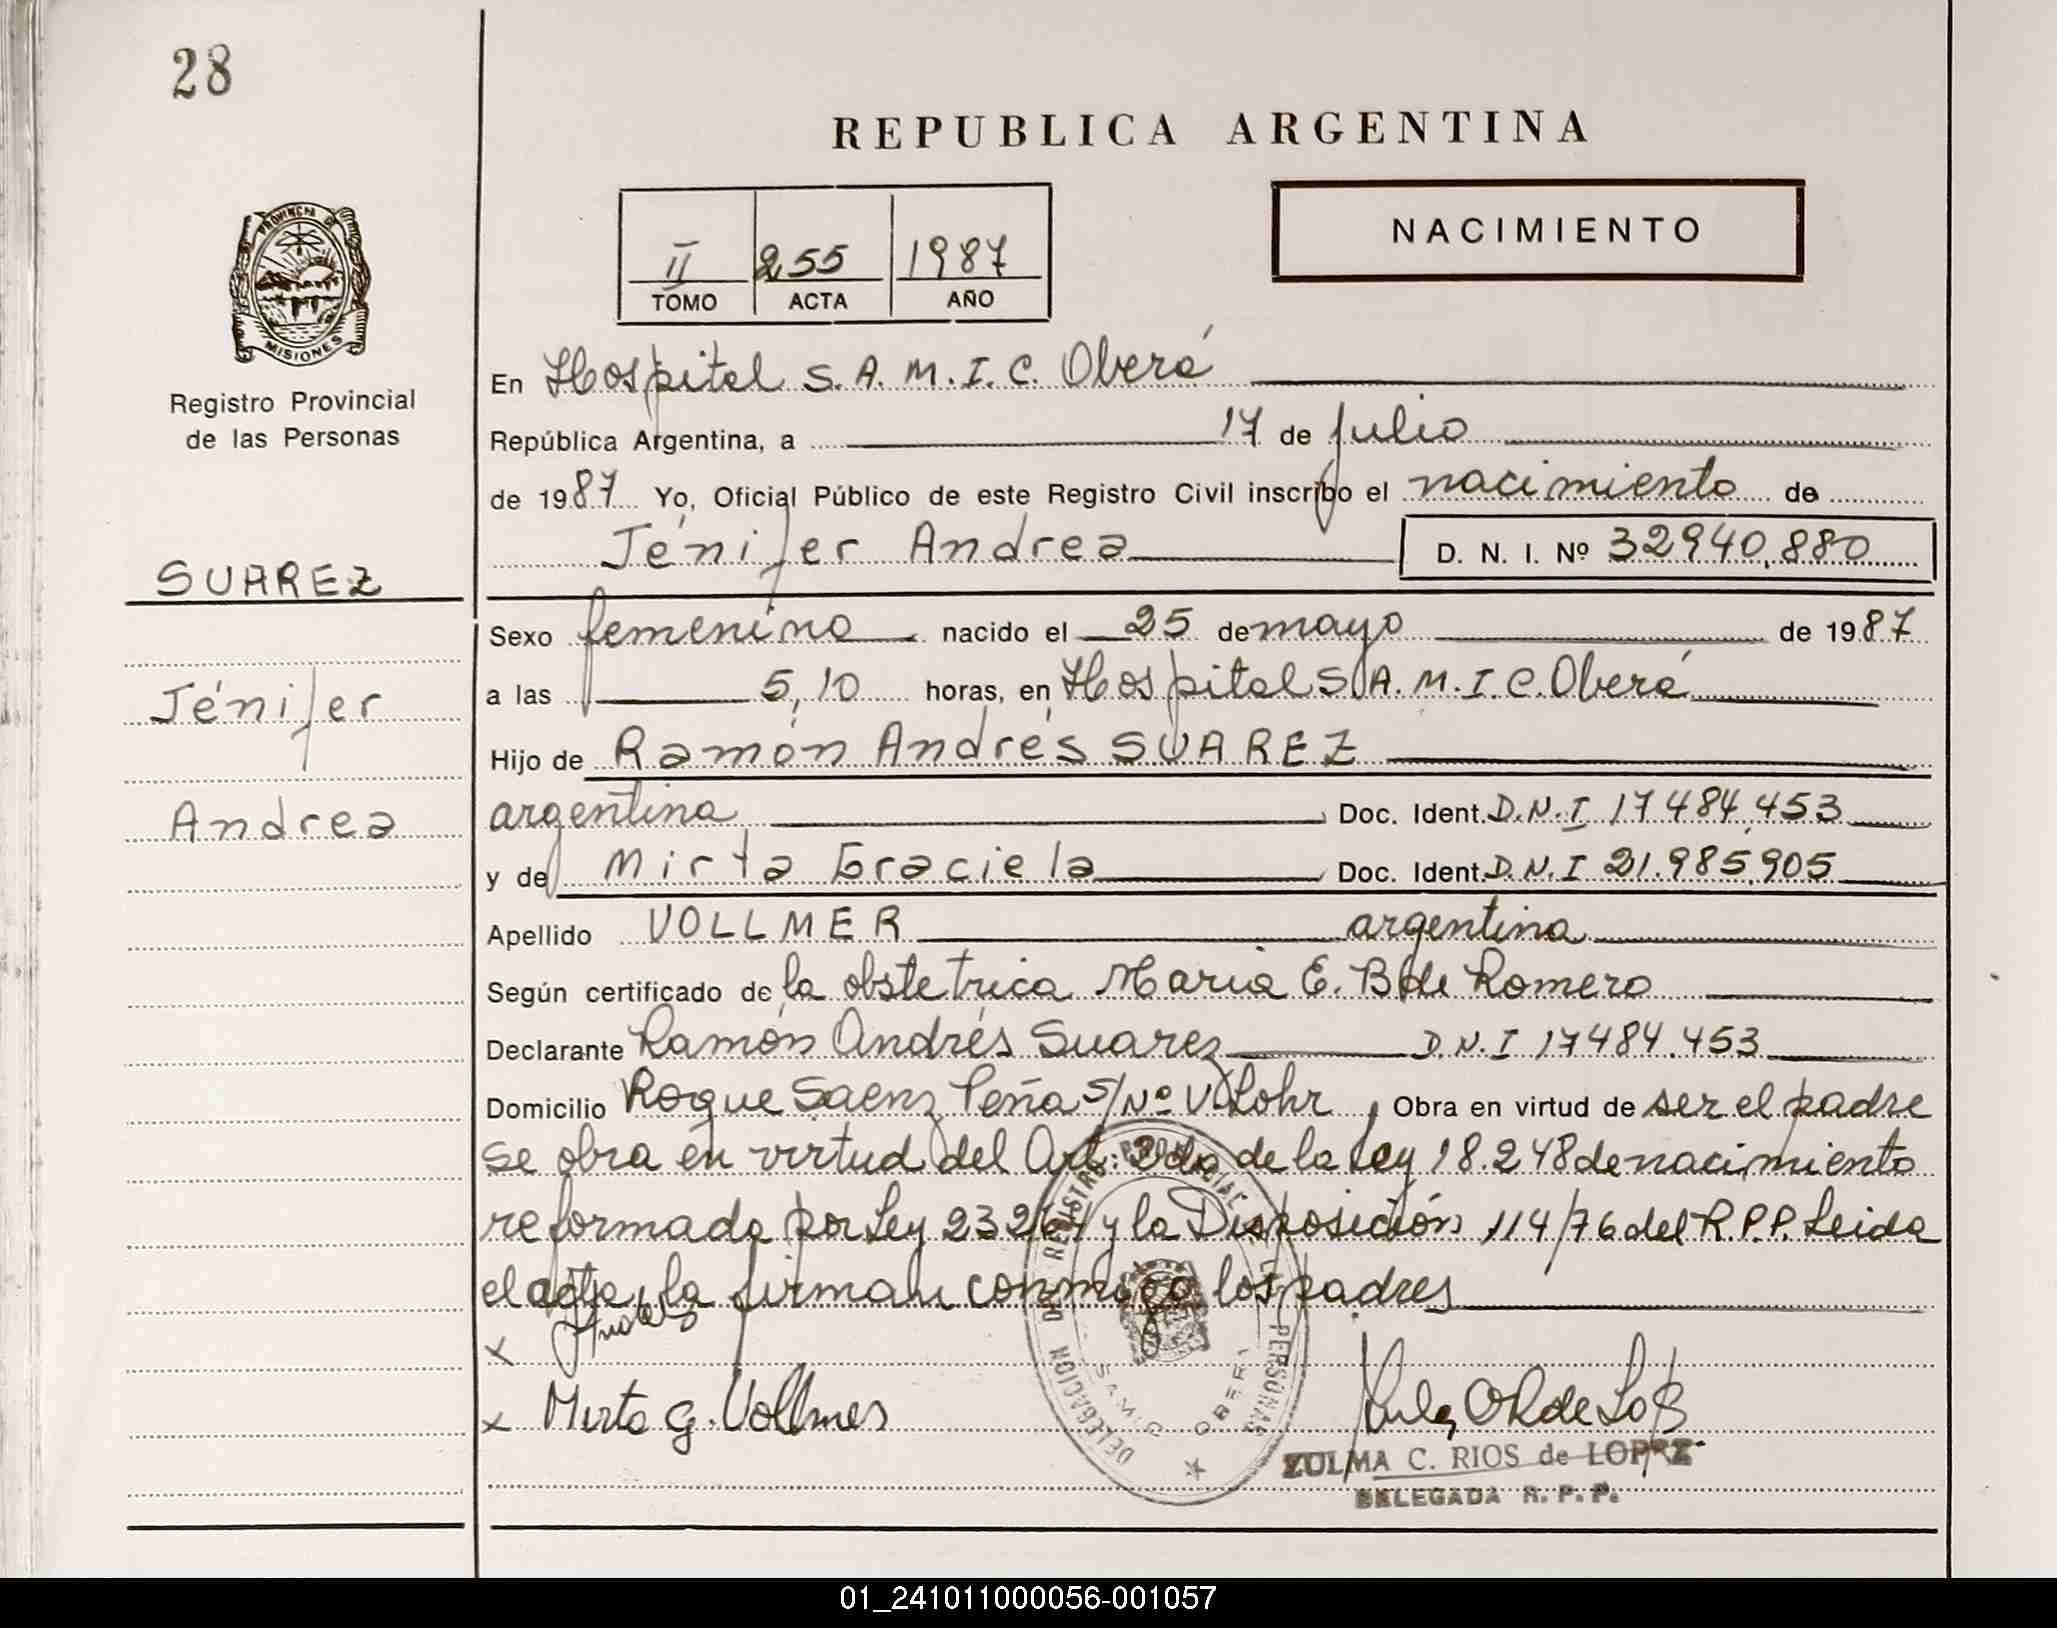 28
REPUBLICA ARGENTINA
II 255 1987
TOMO ACTA AÑO
NACIMIENTO
PROVINCIA DE
MISIONES
Registro Provincial
de las Personas
SUAREZ
Jénifer
Andrea
En Hospital S. A. M. I. C. Oberá
República Argentina, a 17 de julio
de 1987 Yo, Oficial Público de este Registro Civil inscribo el nacimiento de
Jénifer Andrea D. N. I. Nº 32940.880
Sexo femenino nacido el 25 de mayo de 1987
a las 5,10 horas, en Hospital S. A. M. I. C. Oberá
Hijo de Ramón Andrés SUAREZ
argentina Doc. Ident. D.N.I 17484.453
y de Mirta Graciela Doc. Ident. D.N.I 21.985.905
Apellido VOLLMER argentina
Según certificado de la obstetrica Maria E. B de Romero
Declarante Ramón Andrés Suarez D.N.I 17484.453
Domicilio Roque Saenz Peña S/Nº V. Lohr, Obra en virtud de ser el padre
se obra en virtud del Art. 2do de la Ley 18.248 de nacimiento
reformada por Ley 23264 y la Disposición 114/76 del R.P.P. Leida
el acta, la firman conmigo los padres
x
x Mirta G. Vollmer
DELEGACION DEL REGISTRO PROVINCIAL PERSONAS
SAMIC OBERA
ZULMA C. RIOS de LOPEZ
DELEGADA R. P. P.
01_241011000056-001057